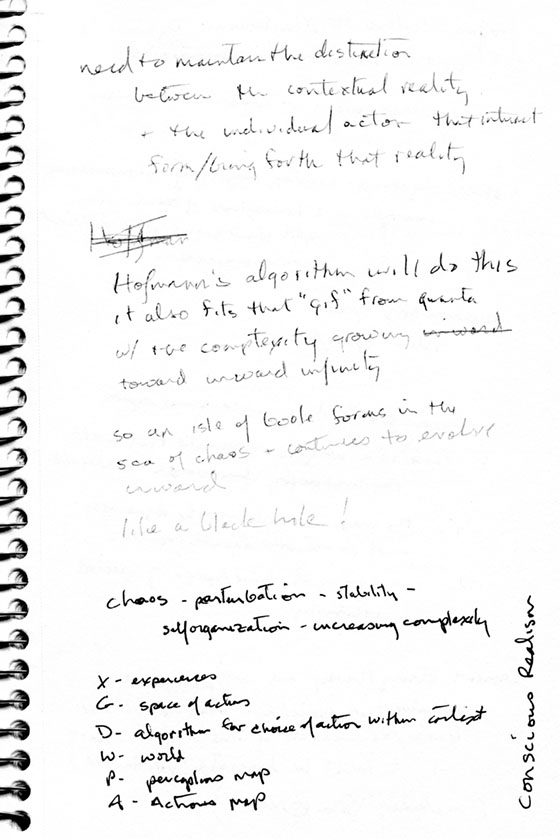 need to maintain the distinction
between the contextual reality
+ the individual actor that interact
form/bring forth that reality
Hoffman
Hofmann's algorithm will do this
it also fits that "gif" from quanta
w/ the complexity growing inward
toward inward infinity
so an isle of Boole forms in the
sea of chaos + continues to evolve
inward
like a black hole!
chaos - perturbation - stability -
selforganization - increasing complexity
X - experiences
G - space of actions
D - algorithm for choice of action within context
W - world
P - perceptions map
A - Actions map
Conscious Realism